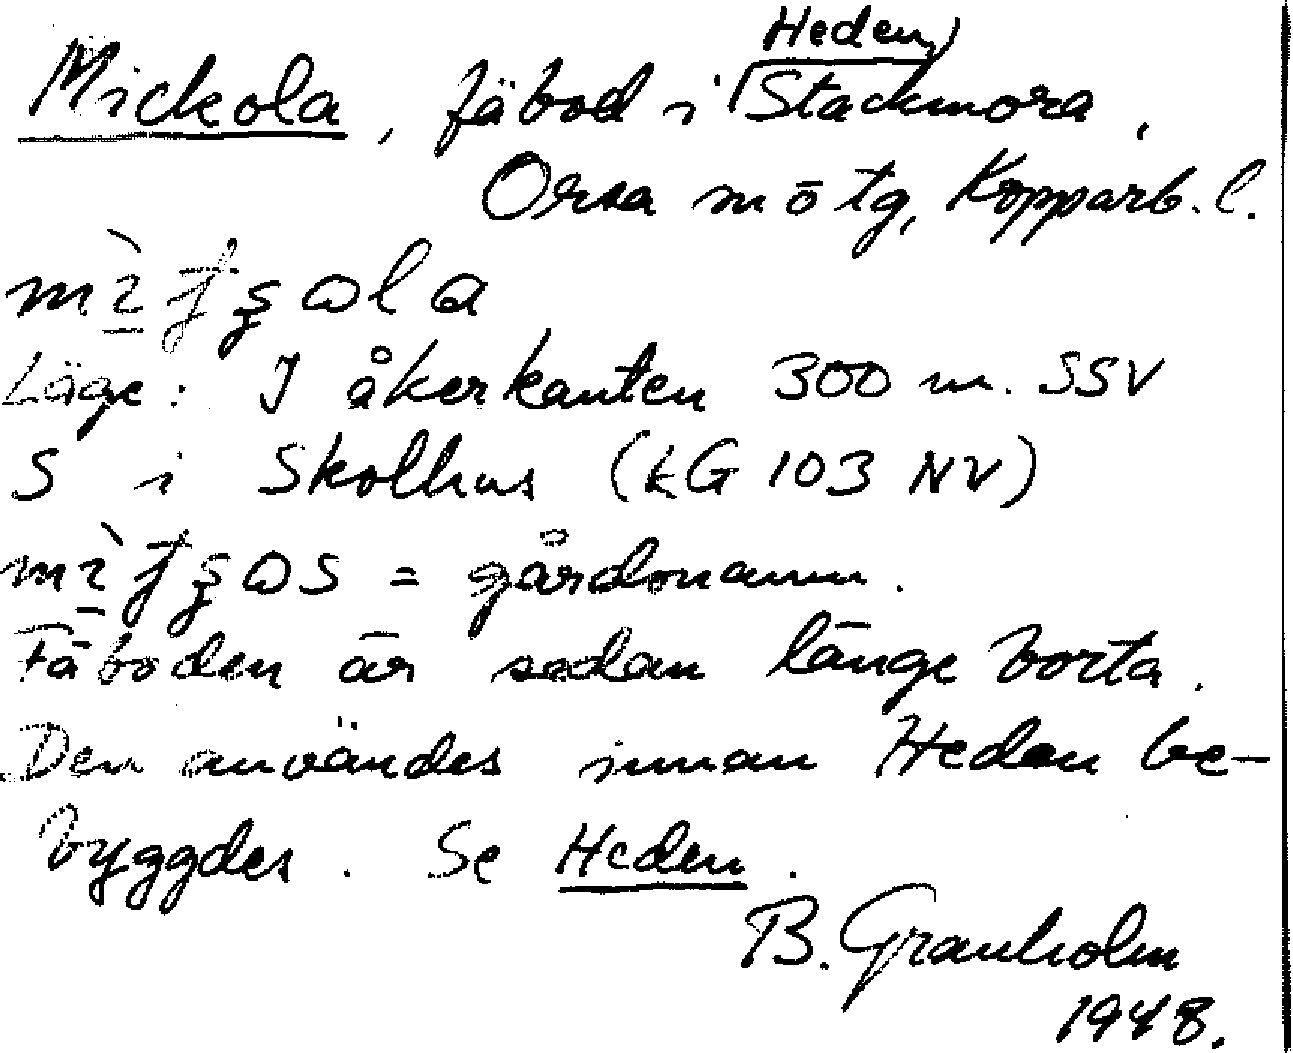 Heden,
Mickola, fäbod i Stackmora,
Orsa sn ō tg, Kopparb. l.
Läge: I åkerkanten 300 m. SSV
S i Skolhus (kG 103 NV)
= gårdsnamn.
Fäboden är sedan länge borta.
Den användes innan Heden be-
byggdes. Se Heden.
B. Granholm
1948.